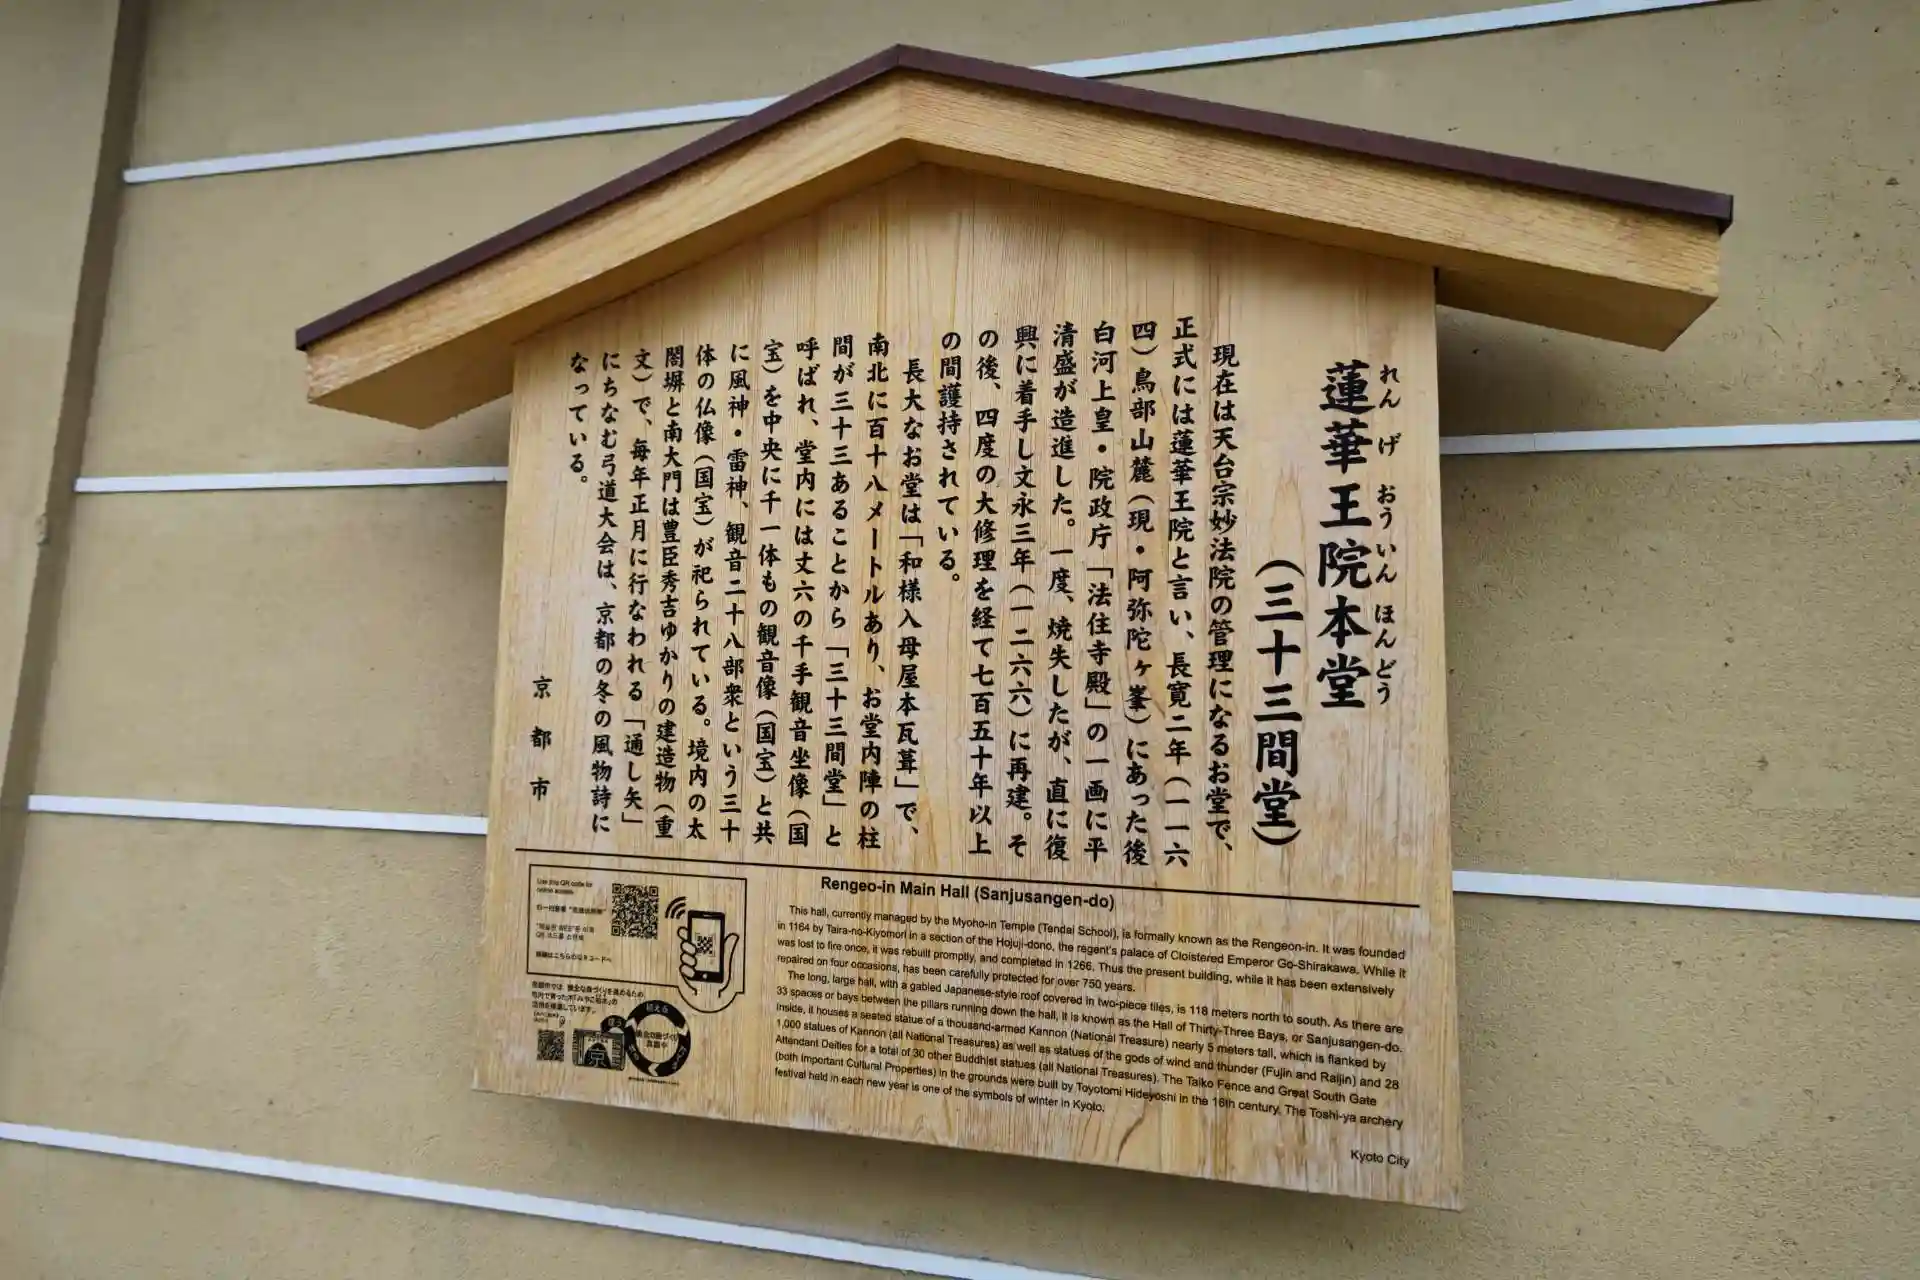 蓮華王院本堂
れん げ おういん ほんどう
（三十三間堂）
現在は天台宗妙法院の管理になるお堂で、
正式には蓮華王院と言い、長寛二年（一一六
四）鳥部山麓（現・阿弥陀ヶ峯）にあった後
白河上皇・院政庁「法住寺殿」の一画に平
清盛が造進した。一度、焼失したが、直に復
興に着手し文永三年（一二六六）に再建。そ
の後、四度の大修理を経て七百五十年以上
の間護持されている。
長大なお堂は「和様入母屋本瓦葺」で、
南北に百十八メートルあり、お堂内陣の柱
間が三十三あることから「三十三間堂」と
呼ばれ、堂内には丈六の千手観音坐像（国
宝）を中央に千一体もの観音像（国宝）と共
に風神・雷神、観音二十八部衆という三十
体の仏像（国宝）が祀られている。境内の太
閤塀と南大門は豊臣秀吉ゆかりの建造物（重
文）で、毎年正月に行なわれる「通し矢」
にちなむ弓道大会は、京都の冬の風物詩に
なっている。
京都市
Rengeo-in Main Hall (Sanjusangen-do)
This hall, currently managed by the Myoho-in Temple (Tendai School), is formally known as the Rengeon-in. It was founded
in 1164 by Taira-no-Kiyomori in a section of the Hojuji-dono, the regent's palace of Cloistered Emperor Go-Shirakawa. While it
was lost to fire once, it was rebuilt promptly, and completed in 1266. Thus the present building, while it has been extensively
repaired on four occasions, has been carefully protected for over 750 years.
The long, large hall, with a gabled Japanese-style roof covered in two-piece tiles, is 118 meters north to south. As there are
33 spaces or bays between the pillars running down the hall, it is known as the Hall of Thirty-Three Bays, or Sanjusangen-do.
Inside, it houses a seated statue of a thousand-armed Kannon (National Treasure) nearly 5 meters tall, which is flanked by
1,000 statues of Kannon (all National Treasures) as well as statues of the gods of wind and thunder (Fujin and Raijin) and 28
Attendant Deities for a total of 30 other Buddhist statues (all National Treasures). The Taiko Fence and Great South Gate
(both Important Cultural Properties) in the grounds were built by Toyotomi Hideyoshi in the 16th century. The Toshi-ya archery
festival held in each new year is one of the symbols of winter in Kyoto.
Kyoto City
Use this QR code for
online access
詳細はこちらのQRコードへ